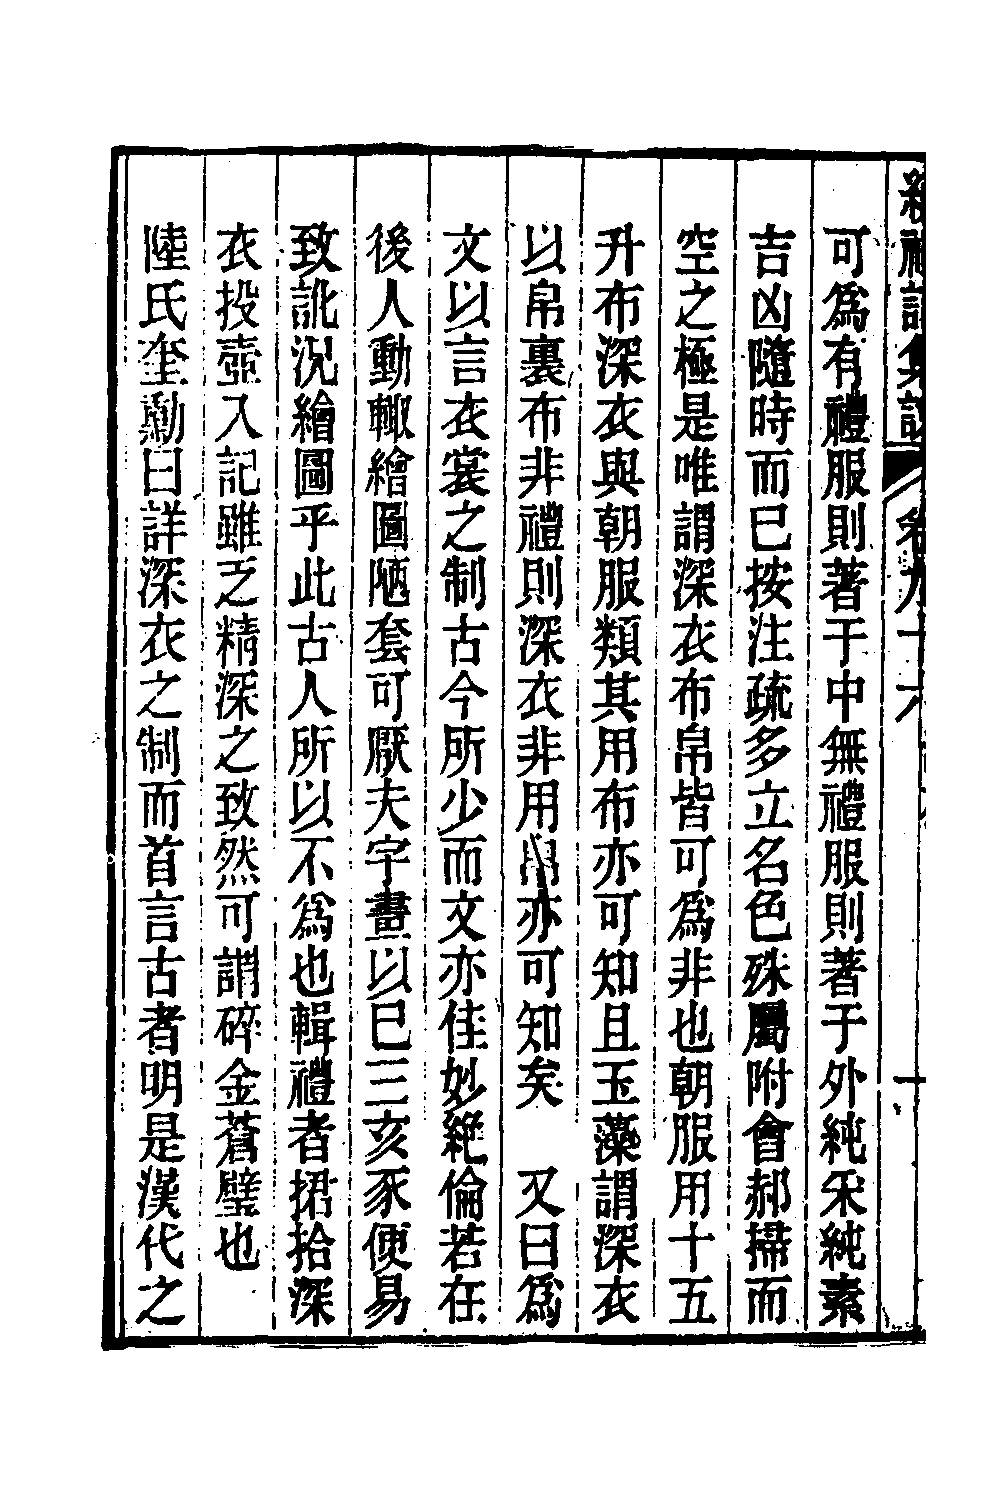 可為有禮服則著于中無禮服則著于外純采純素
吉凶隨時而已按注疏多立名色殊屬附會郝掃而
空之極是唯謂深衣布帛皆可為非也朝服用十五
升布深衣與朝服類其用布亦可知且玉藻謂深衣
以帛裏布非禮則深衣非用帛亦可知矣　又曰為
文以言衣裳之制古今所少而文亦佳妙絕倫若在
後人動輒繪圖陋套可厭夫字畫以巳三亥豕便易
致訛況繪圖乎此古人所以不為也輯禮者捃拾深
衣投壺入記雖乏精深之致然可謂碎金蒼璧也
陸氏奎勳曰詳深衣之制而首言古者明是漢代之